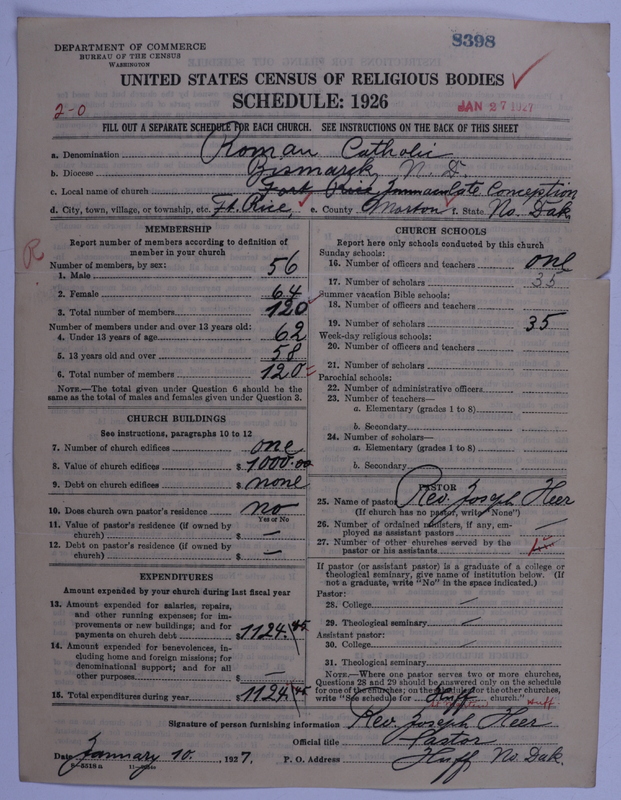 8398
DEPARTMENT OF COMMERCE
BUREAU OF THE CENSUS
WASHINGTON
UNITED STATES CENSUS OF RELIGIOUS BODIES
SCHEDULE: 1926
2-0
JAN 27 1927
FILL OUT A SEPARATE SCHEDULE FOR EACH CHURCH. SEE INSTRUCTIONS ON THE BACK OF THIS SHEET
a. Denomination Roman Catholic
b. Diocese Bismarck, N. D.
c. Local name of church Fort Rice Immaculate Conception
d. City, town, village, or township, etc. Ft. Rice, e. County Morton f. State No. Dak.
R
MEMBERSHIP
Report number of members according to definition of member in your church
Number of members, by sex:
1. Male 56
2. Female 64
3. Total number of members 120
Number of members under and over 13 years old:
4. Under 13 years of age 62
5. 13 years old and over 58
6. Total number of members 120
NOTE.—The total given under Question 6 should be the same as the total of males and females given under Question 3.
CHURCH BUILDINGS
See instructions, paragraphs 10 to 12
7. Number of church edifices one
8. Value of church edifices $ 1000.00
9. Debt on church edifices $ none
10. Does church own pastor's residence? no
Yes or No
11. Value of pastor's residence (if owned by church) $ —
12. Debt on pastor's residence (if owned by church) $ —
EXPENDITURES
Amount expended by your church during last fiscal year
13. Amount expended for salaries, repairs, and other running expenses; for improvements or new buildings; and for payments on church debt $ 1124.45
14. Amount expended for benevolences, including home and foreign missions; for denominational support; and for all other purposes $ —
15. Total expenditures during year $ 1124.45
CHURCH SCHOOLS
Report here only schools conducted by this church
Sunday schools:
16. Number of officers and teachers one
17. Number of scholars 35
Summer vacation Bible schools:
18. Number of officers and teachers
19. Number of scholars 35
Week-day religious schools:
20. Number of officers and teachers
21. Number of scholars
Parochial schools:
22. Number of administrative officers
23. Number of teachers—
a. Elementary (grades 1 to 8)
b. Secondary
24. Number of scholars—
a. Elementary (grades 1 to 8)
b. Secondary
PASTOR
25. Name of pastor Rev. Joseph Heer
(If church has no pastor, write "None")
26. Number of ordained ministers, if any, employed as assistant pastors —
27. Number of other churches served by the pastor or his assistants
If pastor (or assistant pastor) is a graduate of a college or theological seminary, give name of institution below. (If not a graduate, write "No" in the space indicated.)
Pastor:
28. College —
29. Theological seminary —
Assistant pastor:
30. College —
31. Theological seminary
NOTE.—Where one pastor serves two or more churches, Questions 28 and 29 should be answered only on the schedule for one of the churches; on the schedule for the other churches, write "See schedule for Huff church." Huff
Signature of person furnishing information Rev. Joseph Heer
Official title Pastor
Date January 10, 1927. P. O. Address Huff No. Dak.